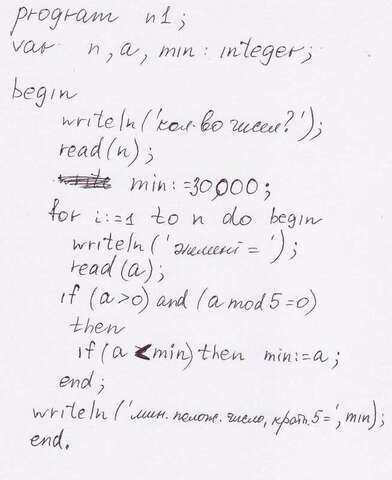 program n1;
var n, a, min: integer;
begin
writeln('кол.во чисел?');
read(n);
min:=30000;
for i:=1 to n do begin
writeln('элемент = ');
read(a);
if (a>0) and (a mod 5=0)
then
if (a<min) then min:=a;
end;
writeln('мин. полож. число, кратн. 5=', min);
end.